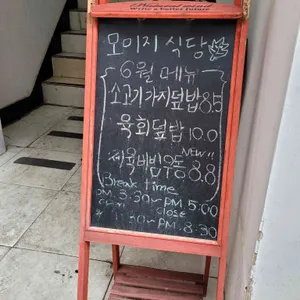 Natural mind
Write a better future
모이지 식당
6월 메뉴
소고기가지덮밥 8.5
육회덮밥 10.0
NEW!!
제육비빔우동 8.8
Break time
PM 3:30~PM 5:00
open close
11:30~PM 8:30